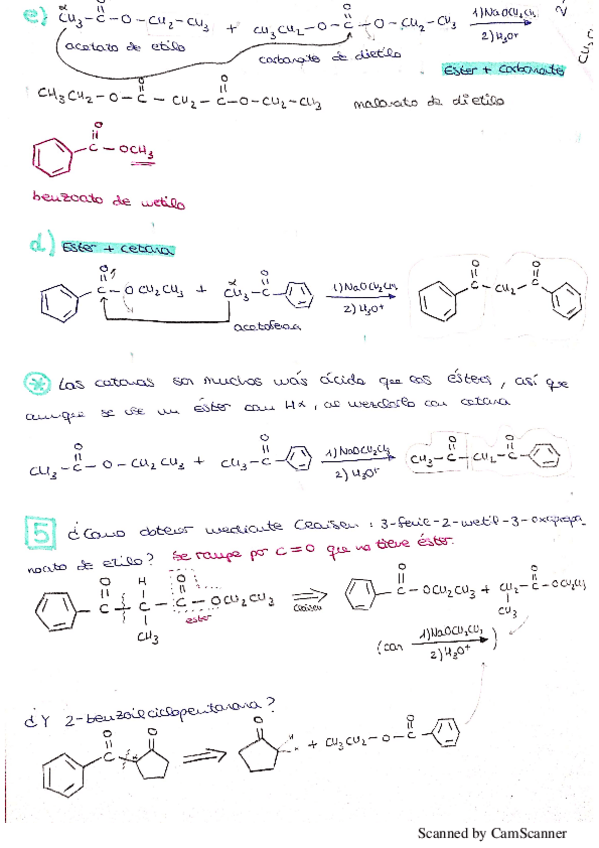 e) CH₃-C-O-CH₂-CH₃ + CH₃CH₂-O-C-O-CH₂-CH₃ 1) NaOCH₂CH₃
2) H₃O⁺
acetato de etilo
carbonato de dietilo
Ester + carbonato
CH₃CH₂-O-C-CH₂-C-O-CH₂-CH₃ malonato de dietilo
C-OCH₃
benzoato de metilo
d) Ester + cetona
C-OCH₂CH₃ + CH₃-C 1) NaOCH₂CH₃ C-CH₂-C
2) H₃O⁺
acetofenona
* Las cetonas son muchos más ácida que los ésters, así que
aunque se use un éster con Hα, al mezclarlo con cetona
CH₃-C-O-CH₂CH₃ + CH₃-C 1) NaOCH₂CH₃ CH₃-C-CH₂-C
2) H₃O⁺
5 ¿Como obtener mediante Claisen: 3-fenil-2-metil-3-oxopropa
noato de etilo? Se rompe por C=O que no tiene éster.
C-C-C-OCH₂CH₃ C-OCH₂CH₃ + CH₂-C-OCH₂CH₃
H
CH₃
ester
Claisen
CH₃
(con 1) NaOCH₂CH₃ )
2) H₃O⁺
¿Y 2-benzoilciclopentanona?
C + CH₃CH₂-O-C
Scanned by CamScanner